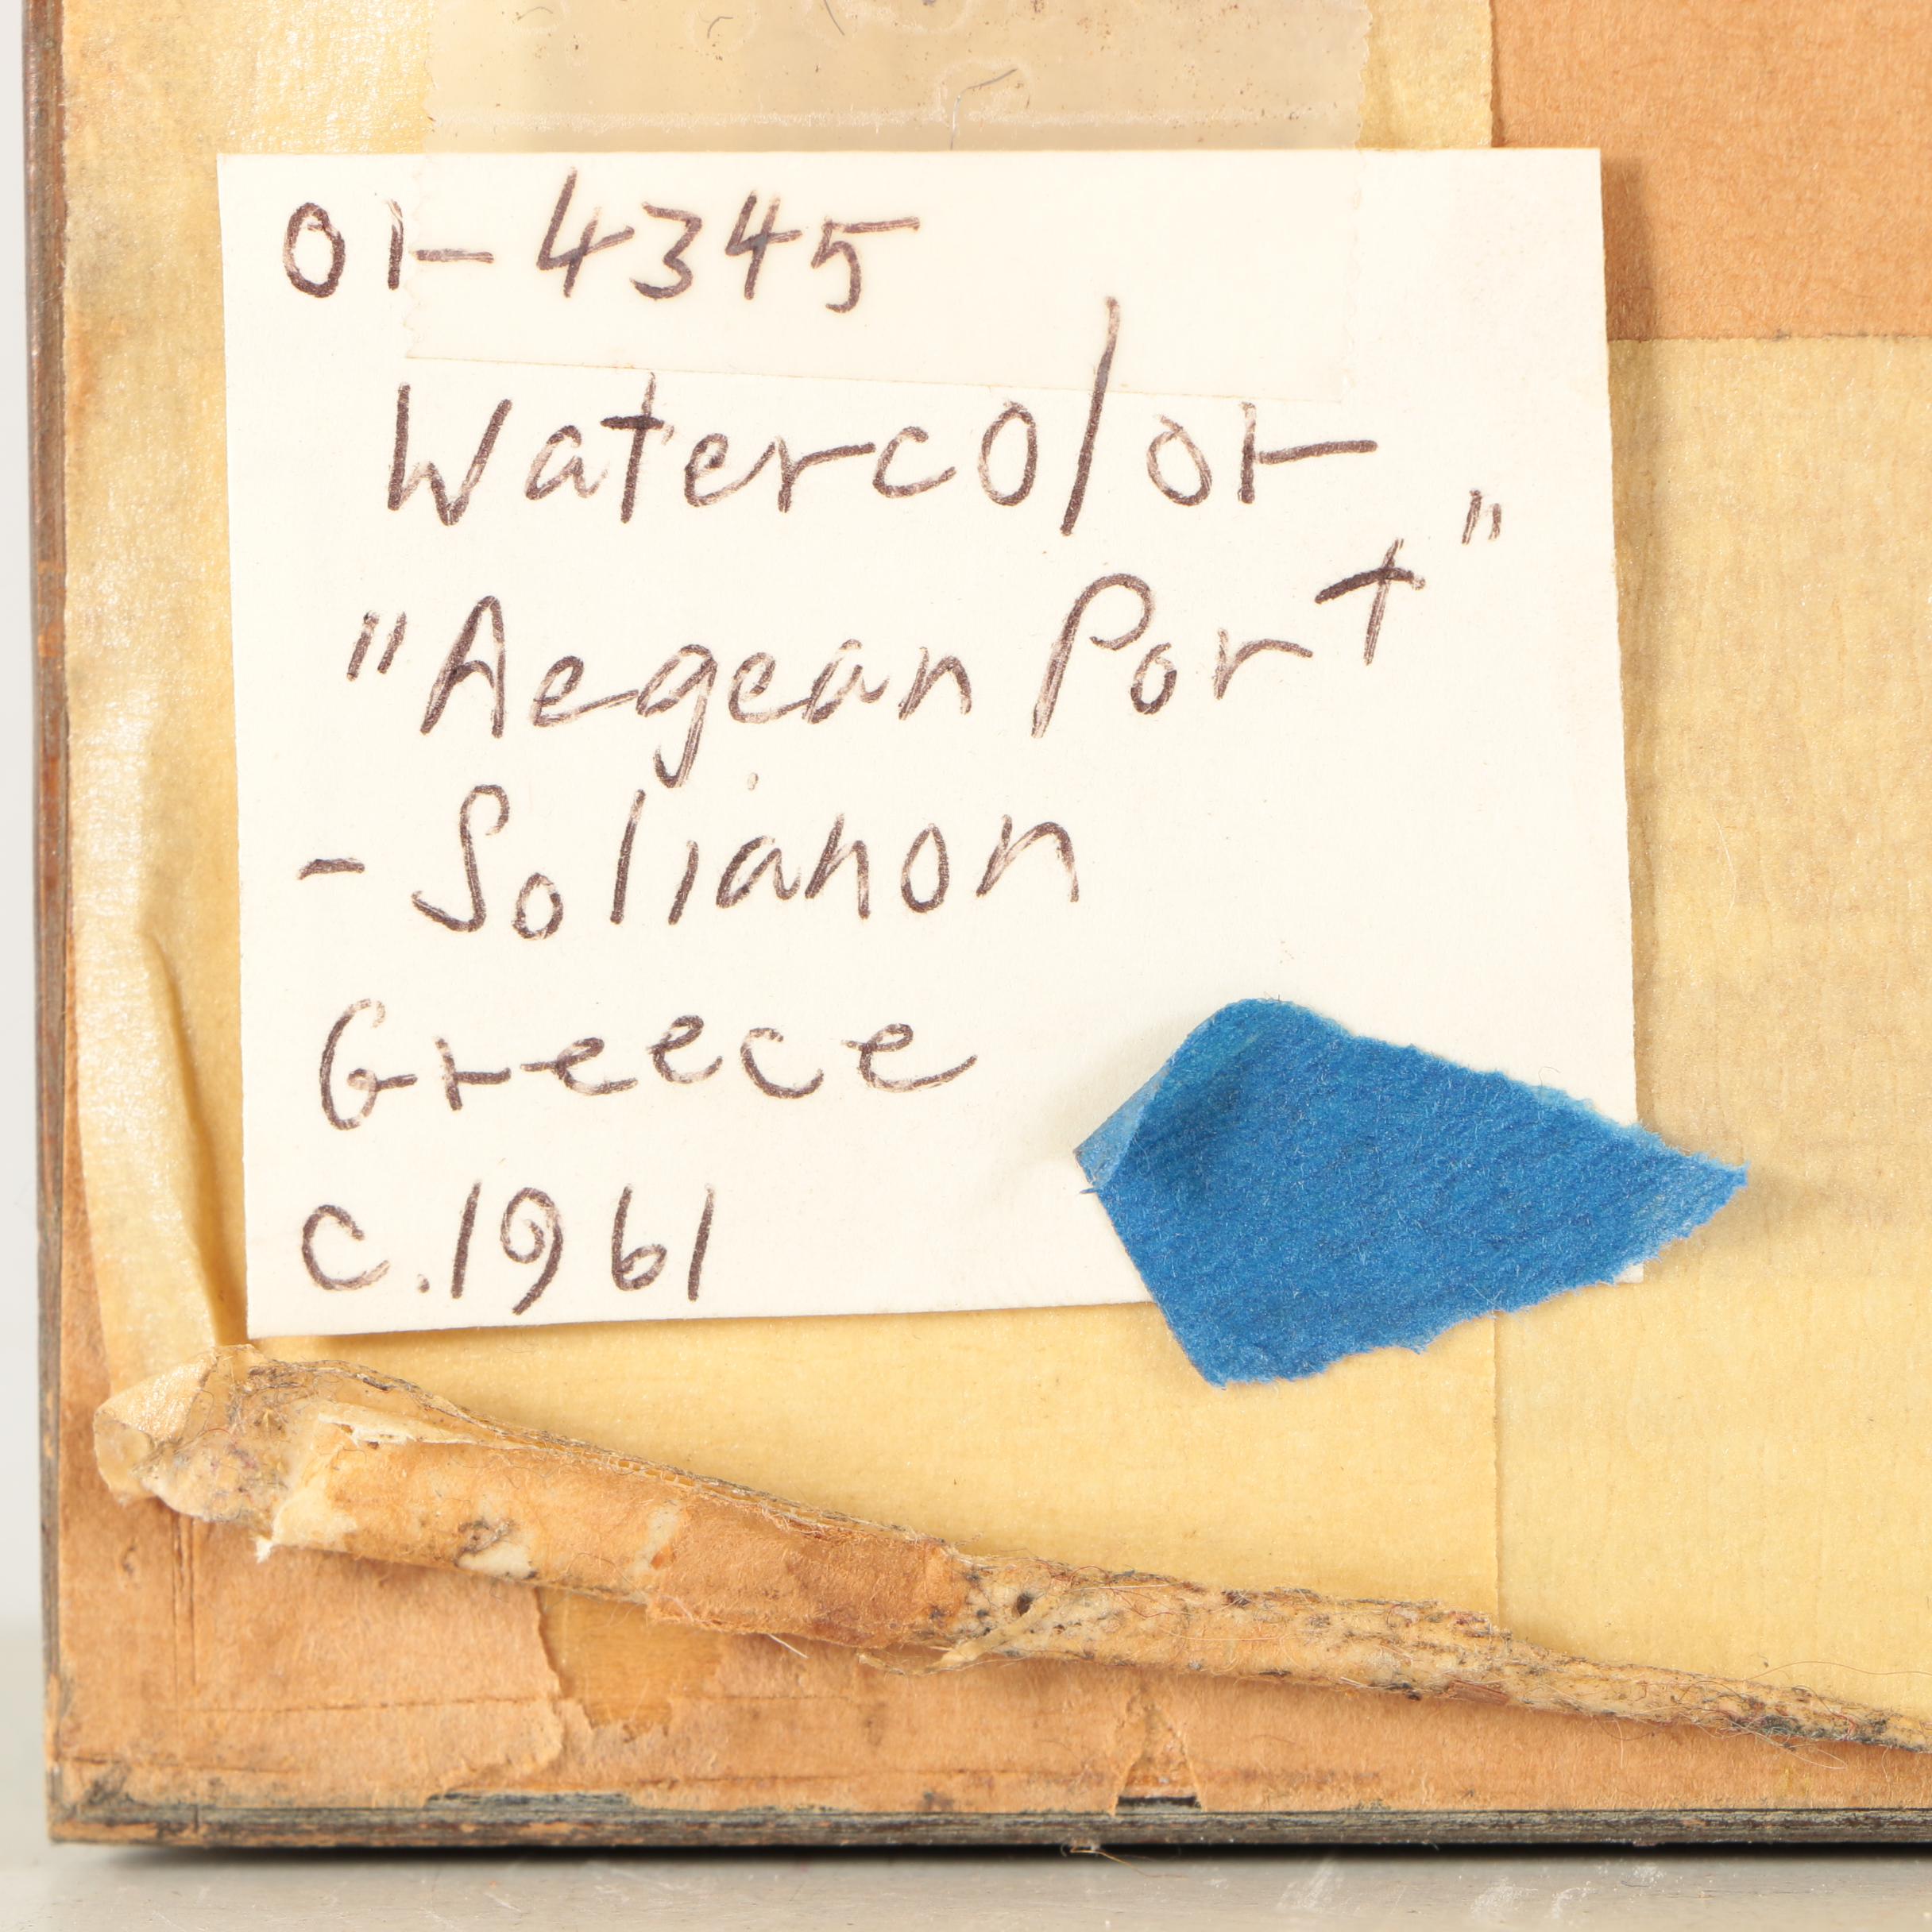 01-4345
Watercolor
"Aegean Port"
- Solianon
Greece
c.1961